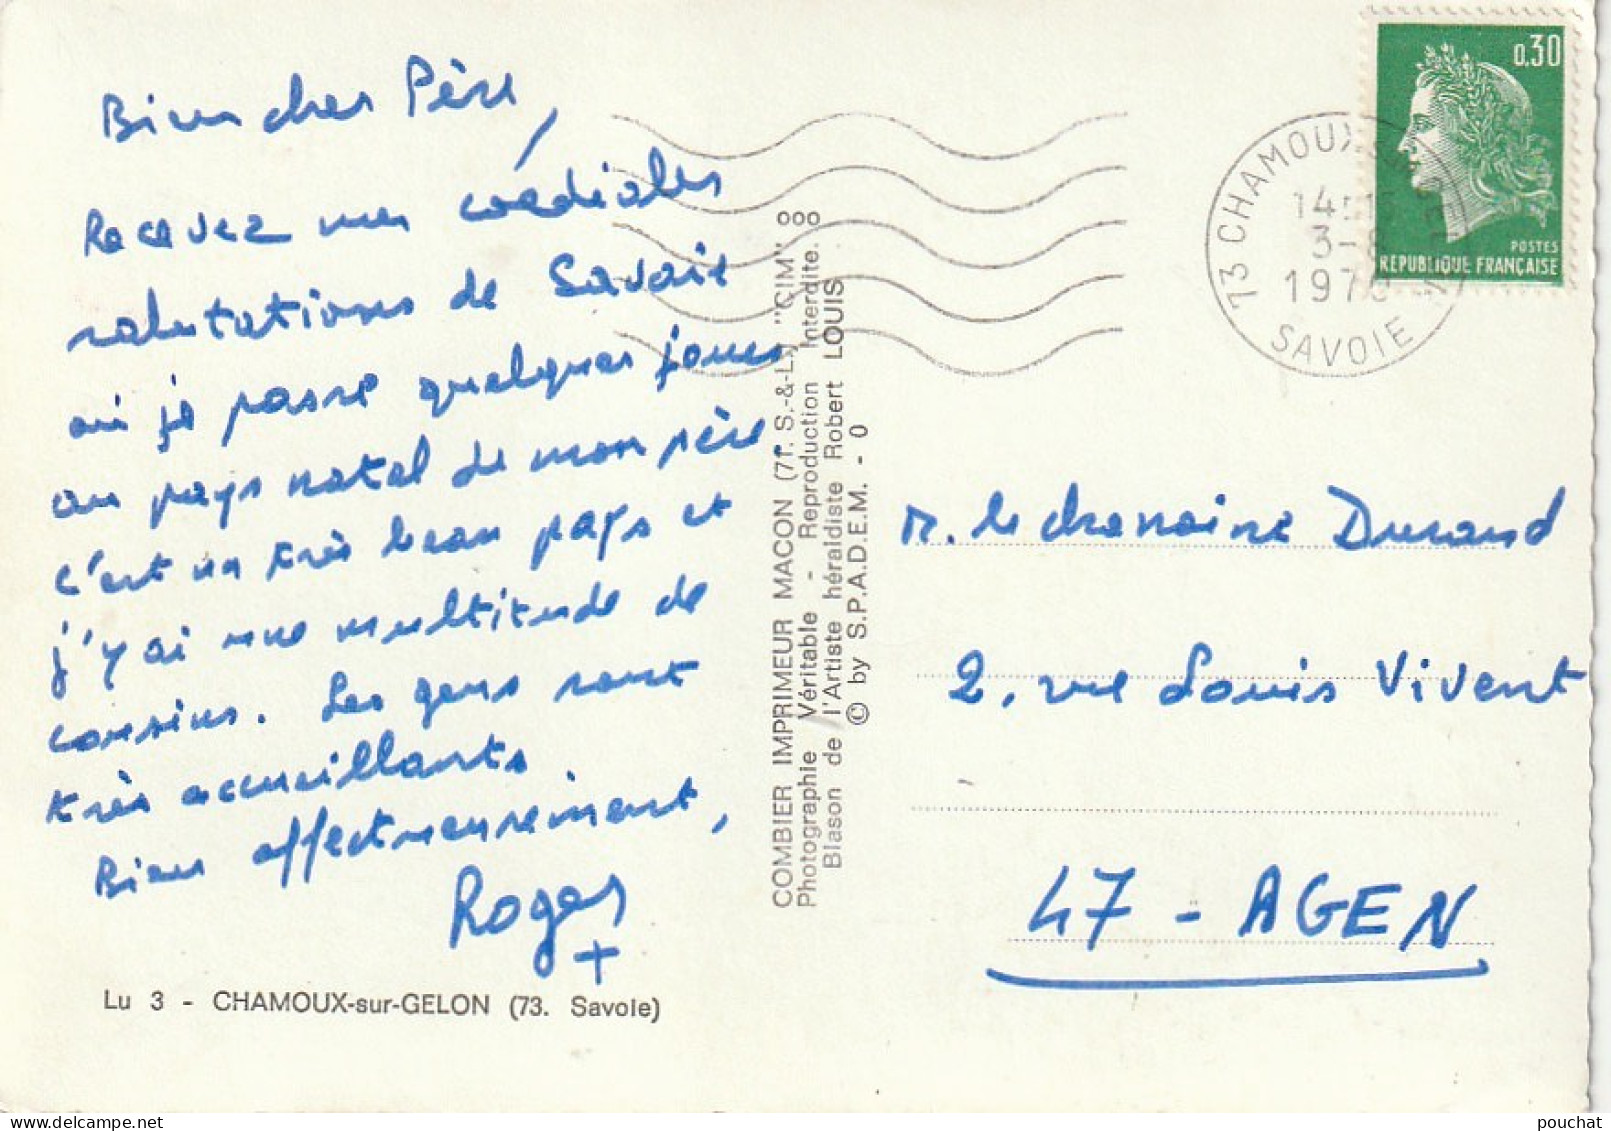 Bien cher Père,
Recevez mes cordiales
salutations de Savoie
où je passe quelques jours
au pays natal de mon père.
c'est un très beau pays et
j'y ai une multitude de
cousins. Les gens sont
très accueillants
Bien affectueusement,
Roger
+
Lu 3 - CHAMOUX-sur-GELON (73. Savoie)
COMBIER IMPRIMEUR MACON (71. S.-&-L.) "CIM"
Photographie Véritable - Reproduction Interdite.
Blason de l'Artiste héraldiste Robert LOUIS
© by S.P.A.D.E.M. - 0
0,30
POSTES
REPUBLIQUE FRANÇAISE
73 CHAMOUX
SAVOIE
M. le chanoine Durand
2, rue Louis Vivent
47 - AGEN
pouchat